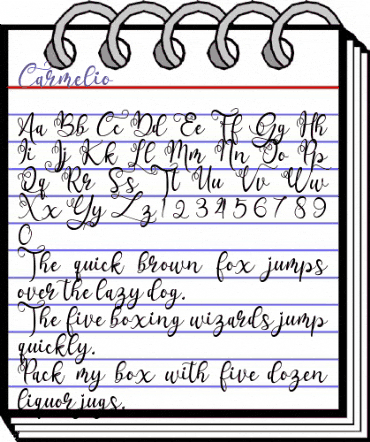 Carmelio
Aa Bb Cc Dd Ee Ff Gg Hh
Ii Jj Kk Ll Mm Nn Oo Pp
Qq Rr Ss Tt Uu Vv Ww
Xx Yy Zz 1 2 3 4 5 6 7 8 9
0
The quick brown fox jumps
over the lazy dog.
The five boxing wizards jump
quickly.
Pack my box with five dozen
liquor jugs.